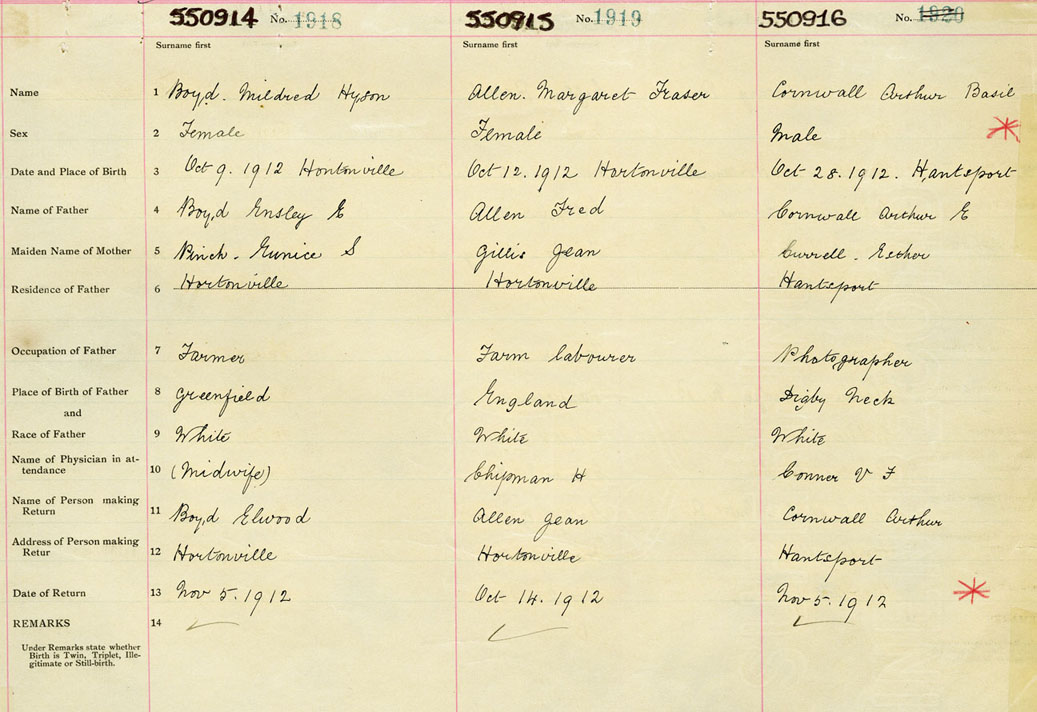 550914 No. 1918 550915 No. 1919 550916 No. 1920
Surname first Surname first Surname first
Name 1 Boyd. Mildred Hyson Allen. Margaret Fraser Cornwall Arthur Basil
Sex 2 Female Female Male
Date and Place of Birth 3 Oct 9. 1912 Hontonville Oct 12. 1912 Hortonville Oct 28. 1912. Hantsport
Name of Father 4 Boyd Ensley E Allen Fred Cornwall Arthur E
Maiden Name of Mother 5 Pinch. Eunice S Gillis Jean Currell. Esther
Residence of Father 6 Hortonville Hortonville Hantsport
Occupation of Father 7 Farmer Farm labourer Photographer
Place of Birth of Father 8 Greenfield England Digby Neck
and
Race of Father 9 White White White
Name of Physician in at-
tendance 10 (Midwife) Chipman H Conner V F
Name of Person making
Return 11 Boyd Elwood Allen Jean Cornwall Arthur
Address of Person making
Retur 12 Hortonville Hortonville Hantsport
Date of Return 13 Nov 5. 1912 Oct 14. 1912 Nov 5. 1912
REMARKS 14
Under Remarks state whether
Birth is Twin, Triplet, Ille-
gitimate or Still-birth.